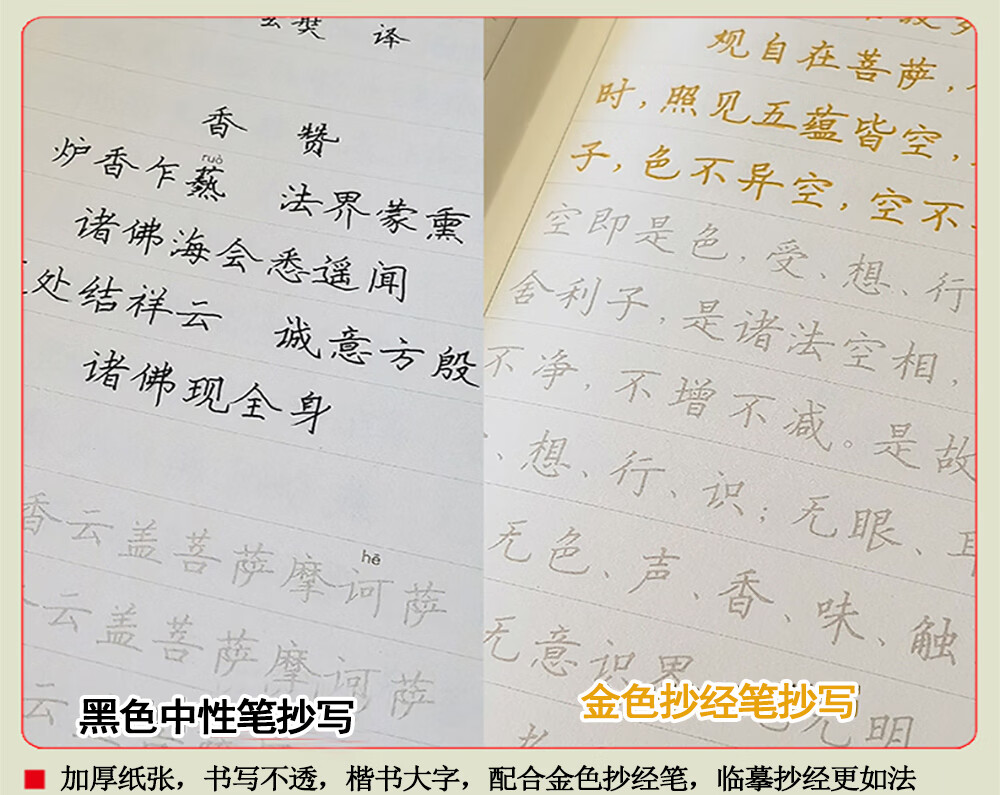 玄奘 译
香 赞
ruò
炉香乍爇 法界蒙熏
诸佛海会悉遥闻
处结祥云 诚意方殷
诸佛现全身
hē
香云盖菩萨摩诃萨
云盖菩萨摩诃萨
云
黑色中性笔抄写
观自在菩萨,
时,照见五蕴皆空,
子,色不异空,空不
空即是色,受、想、行
舍利子,是诸法空相,
不净,不增不减。是故
、想、行、识;无眼、
无色、声、香、味、触
无意识界
无明
金色抄经笔抄写
加厚纸张，书写不透，楷书大字，配合金色抄经笔，临摹抄经更如法